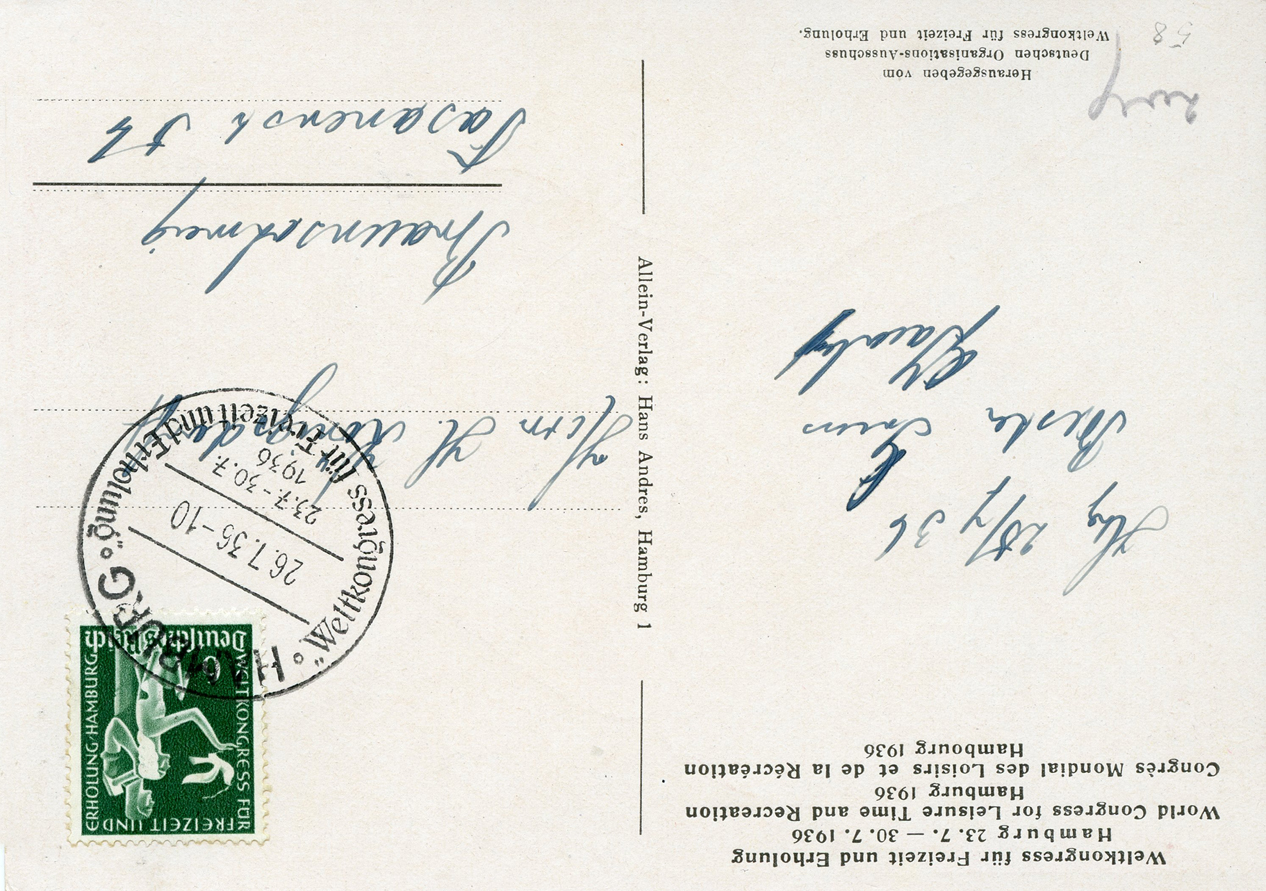 Weltkongress für Freizeit und Erholung
Hamburg 23. 7. — 30. 7. 1936
World Congress for Leisure Time and Recreation
Hamburg 1936
Congrès Mondial des Loisirs et de la Récréation
Hambourg 1936
Hbg 26/7 36
Beste Grüss
Herausgegeben vom
Deutschen Organisations-Ausschuss
Weltkongress für Freizeit und Erholung.
58
Allein-Verlag: Hans Andres, Hamburg 1
WELTKONGRESS FÜR
FREIZEIT UND
ERHOLUNG/HAMBURG
Deutsches Reich
6
HAMBURG
„Weltkongress für Freizeit und Erholung"
26.7.36-10
23.7.-30.7.
1936
Herrn H Königsdorff
Braunschweig